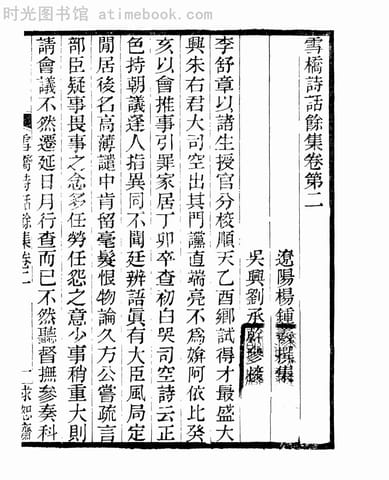 时光图书馆 www.atimebook.com
雪橋詩話餘集卷第二
遼陽楊鍾羲撰集
吳興劉承幹參校
李舒章以諸生授官分校順天乙酉鄉試得才最盛大
興朱右君大司空出其門讜直端亮不為媕阿依比癸
亥以會推事引罪家居丁卯卒查初白哭司空詩云正
色持朝議逢人指異同不聞廷辨語眞有大臣風局定
閒居後名高薄譴中肯留毫髮恨物論久方公嘗疏言
部臣疑事畏事之念多任勞任怨之意少事稍重大則
請會議不然遷延日月行查而已不然聽督撫參奏科
雪橋詩話餘集卷二
一
求恕齋